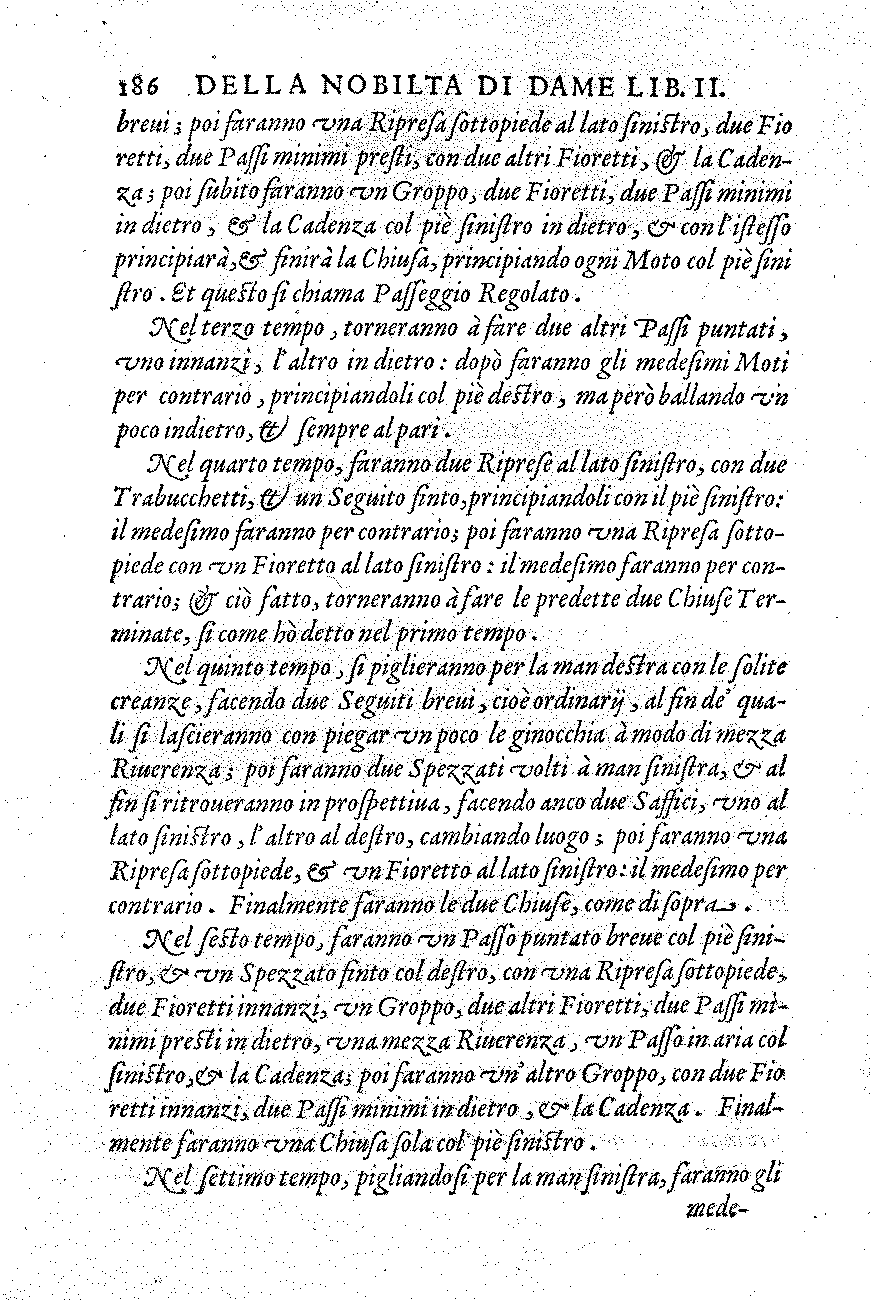 186 DELLA NOBILTA DI DAME LIB. II.
breui; poi faranno vna Ripresa sottopiede al lato sinistro, due Fio
retti, due Passi minimi presti, con due altri Fioretti, & la Caden-
za; poi subito faranno vn Groppo, due Fioretti, due Passi minimi
in dietro, & la Cadenza col piè sinistro in dietro, & con l'istesso
principiarà, & finirà la Chiusa, principiando ogni Moto col piè sini
stro. Et questo si chiama Passeggio Regolato.
Nel terzo tempo, torneranno à fare due altri Passi puntati,
vno innanzi, l'altro in dietro: dopò faranno gli medesimi Moti
per contrario, principiandoli col piè destro, ma però ballando vn
poco indietro, & sempre al pari.
Nel quarto tempo, faranno due Riprese al lato sinistro, con due
Trabucchetti, & un Seguito finto, principiandoli con il piè sinistro:
il medesimo faranno per contrario; poi faranno vna Ripresa sotto-
piede con vn Fioretto al lato sinistro: il medesimo faranno per con-
trario; & ciò fatto, torneranno à fare le predette due Chiuse Ter-
minate, si come hò detto nel primo tempo.
Nel quinto tempo, si piglieranno per la man destra con le solite
creanze, facendo due Seguiti breui, cioè ordinarij, al fin de' qua-
li si lascieranno con piegar vn poco le ginocchia à modo di mezza
Riuerenza; poi faranno due Spezzati volti à man sinistra, & al
fin si ritroueranno in prospettiua, facendo anco due Saffici, vno al
lato sinistro, l'altro al destro, cambiando luogo; poi faranno vna
Ripresa sottopiede, & vn Fioretto al lato sinistro: il medesimo per
contrario. Finalmente faranno le due Chiuse, come di sopra.
Nel sesto tempo, faranno vn Passo puntato breue col piè sini-
stro, & vn Spezzato finto col destro, con vna Ripresa sottopiede,
due Fioretti innanzi, vn Groppo, due altri Fioretti, due Passi mi-
nimi presti in dietro, vna mezza Riuerenza, vn Passo in aria col
sinistro, & la Cadenza; poi faranno vn' altro Groppo, con due Fio
retti innanzi, due Passi minimi in dietro, & la Cadenza. Final-
mente faranno vna Chiusa sola col piè sinistro.
Nel settimo tempo, pigliandosi per la man sinistra, faranno gli
mede-